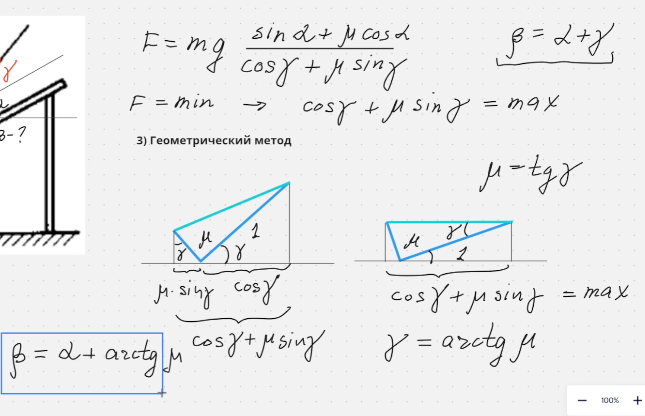 F = mg (sin α + μ cos α) / (cos γ + μ sin γ)
β = α + γ
γ
α
β - ?
F = min → cos γ + μ sin γ = max
3) Геометрический метод
μ = tg γ
γ μ γ 1
μ γ 1
μ · sin γ cos γ
cos γ + μ sin γ = max
cos γ + μ sin γ
γ = arctg μ
β = α + arctg μ
− 100% +